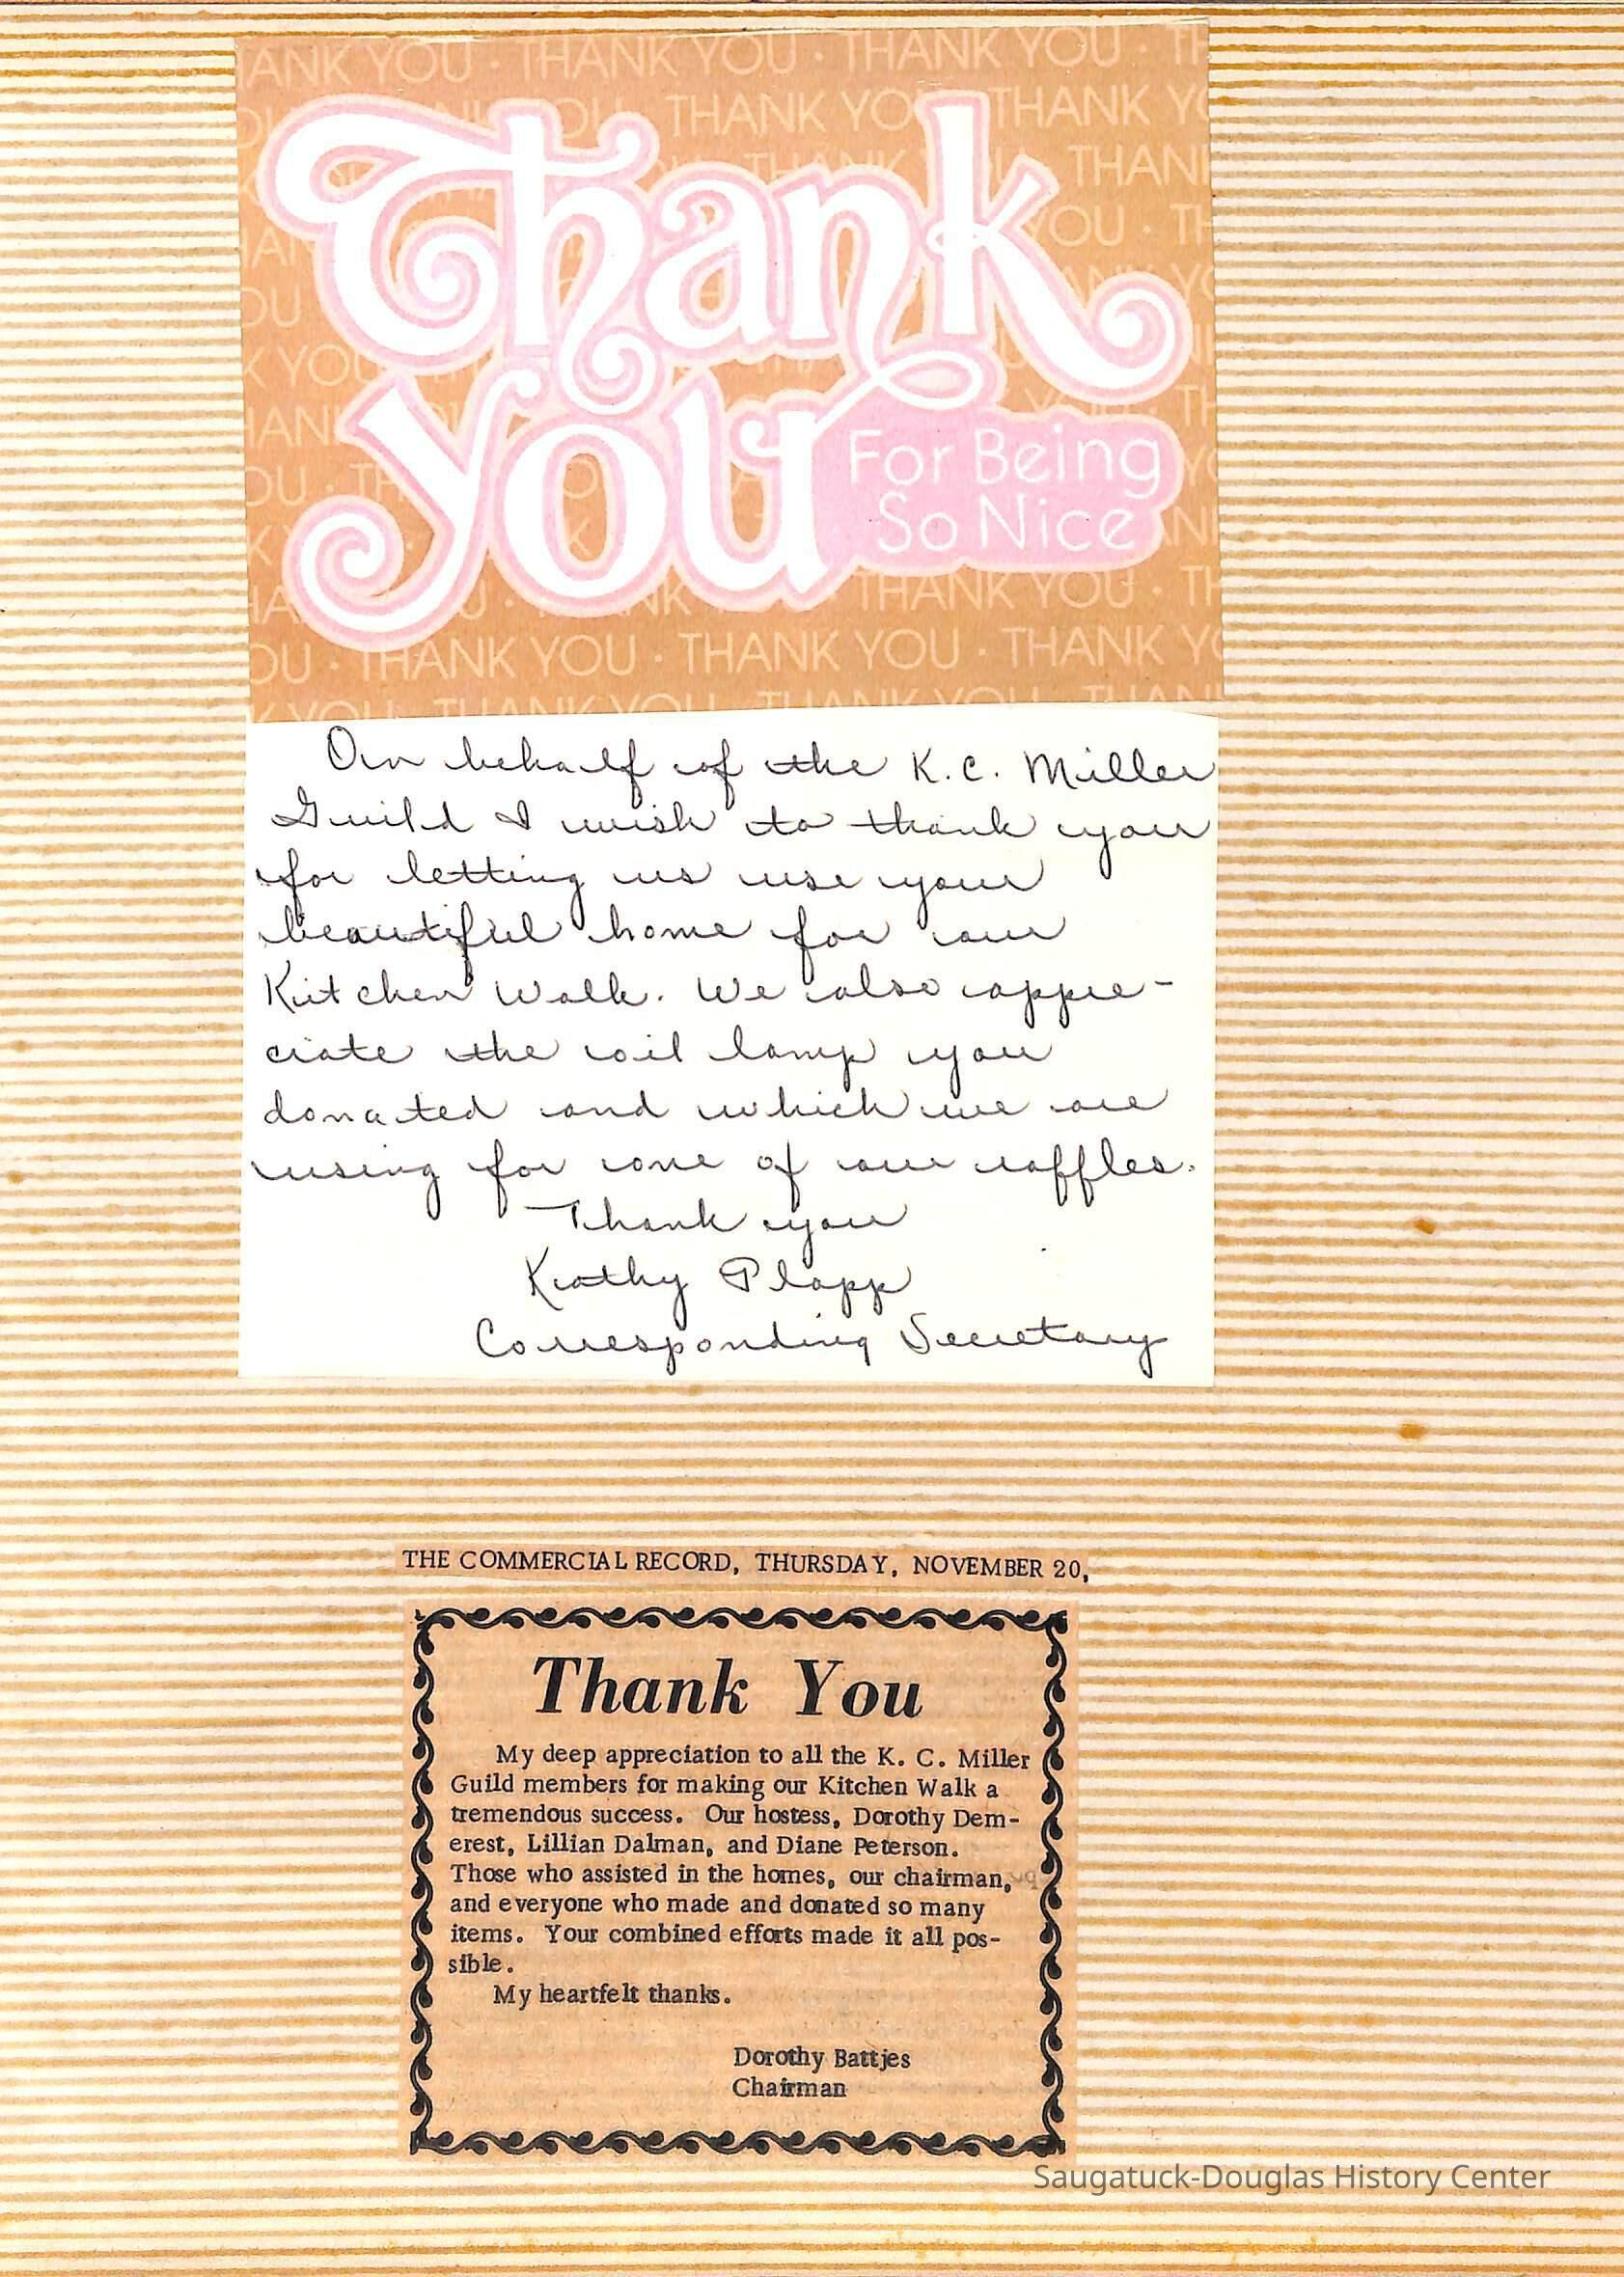 Thank
you
For Being
So Nice
On behalf of the K.C. Miller
Guild I wish to thank you
for letting us use your
beautiful home for our
Kitchen Walk. We also appre-
ciate the oil lamp you
donated and which we are
using for one of our raffles.
Thank you
Kathy Plapp
Corresponding Secretary
THE COMMERCIAL RECORD, THURSDAY, NOVEMBER 20,
Thank You
My deep appreciation to all the K. C. Miller
Guild members for making our Kitchen Walk a
tremendous success. Our hostess, Dorothy Dem-
erest, Lillian Dalman, and Diane Peterson.
Those who assisted in the homes, our chairman,
and everyone who made and donated so many
items. Your combined efforts made it all pos-
sible.
My heartfelt thanks.
Dorothy Battjes
Chairman
Saugatuck-Douglas History Center